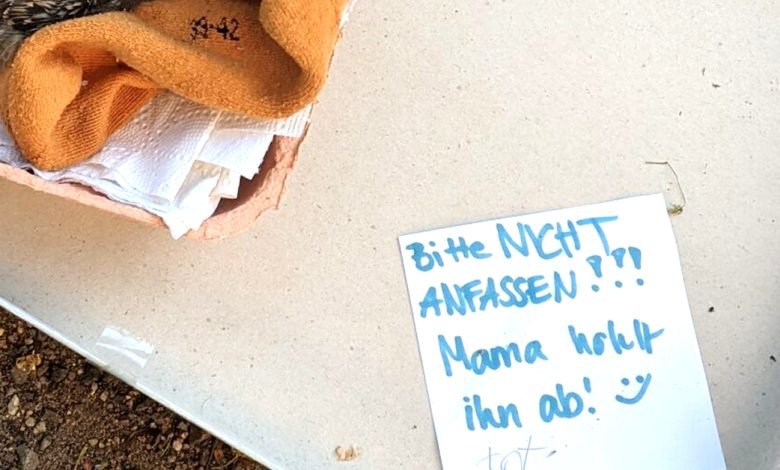 39-42
Bitte NICHT
ANFASSEN!!!
Mama hohlt
ihn ab! :)
tot